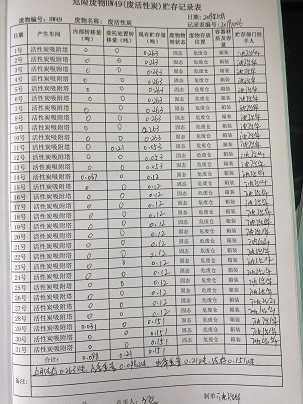 危险废物HW49(废活性炭)贮存记录表
废物编号: HW49 废物名称: 废活性炭
日期 产生车间 内部转移量(吨) 委托处置转移量(吨) 现有贮存量(吨) 废物物理状态 废物存放位置 贮存部门经手人
1号 活性炭吸附塔 0 0 0.263 固态 危废仓 箱装
2号 活性炭吸附塔 0 0 0.263 固态 危废仓 箱装
3号 活性炭吸附塔 0 0 0.263 固态 危废仓 箱装
4号 活性炭吸附塔 0 0 0.263 固态 危废仓 箱装
5号 活性炭吸附塔 0 0 0.263 固态 危废仓 箱装
6号 活性炭吸附塔 0 0 0.263 固态 危废仓 箱装
7号 活性炭吸附塔 0 0 0.263 固态 危废仓 箱装
8号 活性炭吸附塔 0 0 0.263 固态 危废仓 箱装
9号 活性炭吸附塔 0 0 0.263 固态 危废仓 箱装
10号 活性炭吸附塔 0 0 0.263 固态 危废仓 箱装
11号 活性炭吸附塔 0 0.21 0.053 固态 危废仓 箱装
12号 活性炭吸附塔 0 0 0.053 固态 危废仓 箱装
13号 活性炭吸附塔 0 0 0.053 固态 危废仓 箱装
14号 活性炭吸附塔 0.067 0 0.12 固态 危废仓 箱装
15号 活性炭吸附塔 0 0 0.12 固态 危废仓 箱装
16号 活性炭吸附塔 0 0 0.12 固态 危废仓 箱装
17号 活性炭吸附塔 0 0 0.12 固态 危废仓 箱装
18号 活性炭吸附塔 0 0 0.12 固态 危废仓 箱装
19号 活性炭吸附塔 0 0 0.12 固态 危废仓 箱装
20号 活性炭吸附塔 0 0 0.12 固态 危废仓 箱装
21号 活性炭吸附塔 0 0 0.12 固态 危废仓 箱装
22号 活性炭吸附塔 0 0 0.12 固态 危废仓 箱装
23号 活性炭吸附塔 0 0 0.12 固态 危废仓 箱装
24号 活性炭吸附塔 0 0 0.12 固态 危废仓 箱装
25号 活性炭吸附塔 0 0 0.12 固态 危废仓 箱装
26号 活性炭吸附塔 0 0 0.12 固态 危废仓 箱装
27号 活性炭吸附塔 0 0 0.12 固态 危废仓 箱装
28号 活性炭吸附塔 0 0 0.12 固态 危废仓 箱装
29号 活性炭吸附塔 0.031 0 0.151 固态 危废仓 箱装
30号 活性炭吸附塔 0 0 0.151 固态 危废仓 箱装
31号 活性炭吸附塔 0 0 0.151 固态 危废仓 箱装
合计: 0.098 0.21 0.151
备注:
制单